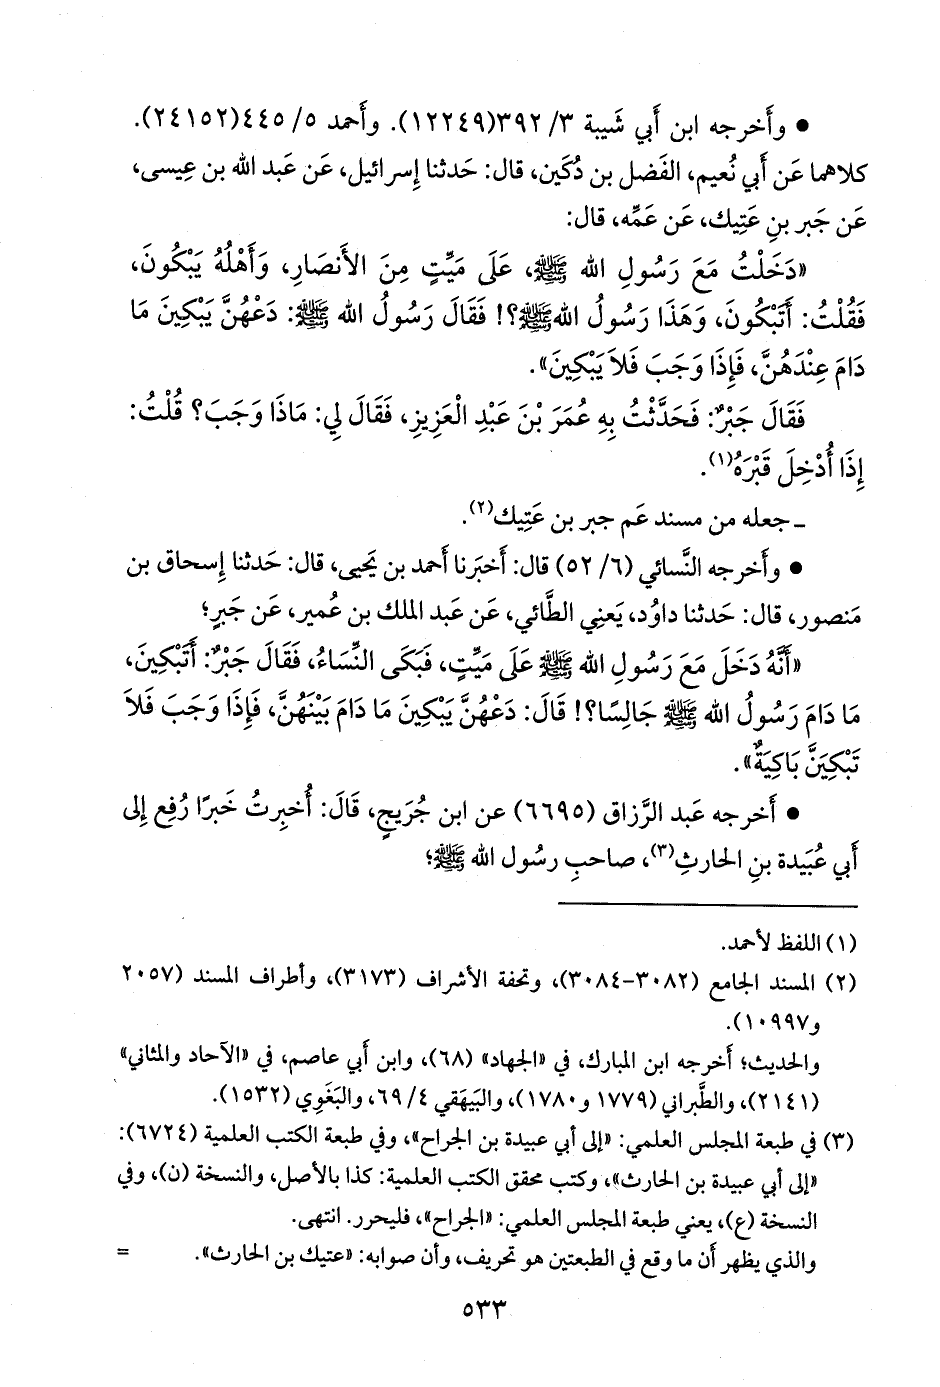 • وأَخرجه ابن أَبي شَيبة ٣/ ٣٩٢(١٢٢٤٩). وأَحمد ٥/ ٤٤٥(٢٤١٥٢).
كلاهما عَن أَبي نُعيم، الفَضل بن دُكَين، قال: حَدثنا إِسرائيل، عَن عَبد الله بن عِيسى،
عَن جَبر بنِ عَتِيك، عَن عَمِّه، قال:
«دَخَلْتُ مَعَ رَسُولِ الله ﷺ، عَلَى مَيِّتٍ مِنَ الأَنصَارِ، وَأَهْلُهُ يَبْكُونَ،
فَقُلْتُ: أَتَبْكُونَ، وَهَذَا رَسُولُ اللهﷺ؟! فَقَالَ رَسُولُ الله ﷺ: دَعْهُنَّ يَبْكِينَ مَا
دَامَ عِنْدَهُنَّ، فَإِذَا وَجَبَ فَلاَ يَبْكِينَ».
فَقَالَ جَبْرٌ: فَحَدَّثْتُ بِهِ عُمَرَ بْنَ عَبْدِ الْعَزِيزِ، فَقَالَ لِي: مَاذَا وَجَبَ؟ قُلْتُ:
إِذَا أُدْخِلَ قَبْرَهُ(١).
ـ جعله من مسند عَم جبر بن عَتِيك(٢).
• وأَخرجه النَّسائي (٦/ ٥٢) قال: أَخبَرنا أَحمد بن يَحيى، قال: حَدثنا إِسحاق بن
مَنصور، قال: حَدثنا داوُد، يَعنِي الطَّائي، عَن عَبد الملك بن عُمير، عَن جَبرٍ؛
«أَنَّهُ دَخَلَ مَعَ رَسُولِ الله ﷺ عَلَى مَيِّتٍ، فَبَكَى النِّسَاءُ، فَقَالَ جَبْرٌ: أَتَبْكِينَ،
مَا دَامَ رَسُولُ الله ﷺ جَالِسًا؟! قَالَ: دَعْهُنَّ يَبْكِينَ مَا دَامَ بَيْنَهُنَّ، فَإِذَا وَجَبَ فَلاَ
تَبْكِيَنَّ بَاكِيَةٌ».
• أَخرجه عَبد الرَّزاق (٦٦٩٥) عن ابن جُرَيجٍ، قَالَ: أُخبِرتُ خَبرًا رُفِع إِلى
أَبي عُبَيدة بنِ الحارثِ(٣)، صاحبِ رسُول الله ﷺ؛
(١) اللفظ لأَحمد.
(٢) المسند الجامع (٣٠٨٢-٣٠٨٤)، وتحفة الأشراف (٣١٧٣)، وأطراف المسند (٢٠٥٧
و١٠٩٩٧).
والحديث؛ أَخرجه ابن المبارك، في «الجهاد» (٦٨)، وابن أَبي عاصم، في «الآحاد والمثاني»
(٢١٤١)، والطَّبراني (١٧٧٩ و١٧٨٠)، والبَيهَقي ٤/ ٦٩، والبَغَوِي (١٥٣٢).
(٣) في طبعة المجلس العلمي: «إلى أبي عبيدة بن الجراح»، وفي طبعة الكتب العلمية (٦٧٢٤):
«إلى أبي عبيدة بن الحارث»، وكتب محقق الكتب العلمية: كذا بالأصل، والنسخة (ن)، وفي
النسخة (ع)، يعني طبعة المجلس العلمي: «الجراح»، فليحرر. انتهى.
والذي يظهر أَن ما وقع في الطبعتين هو تحريف، وأن صوابه: «عتيك بن الحارث». =
٥٣٣